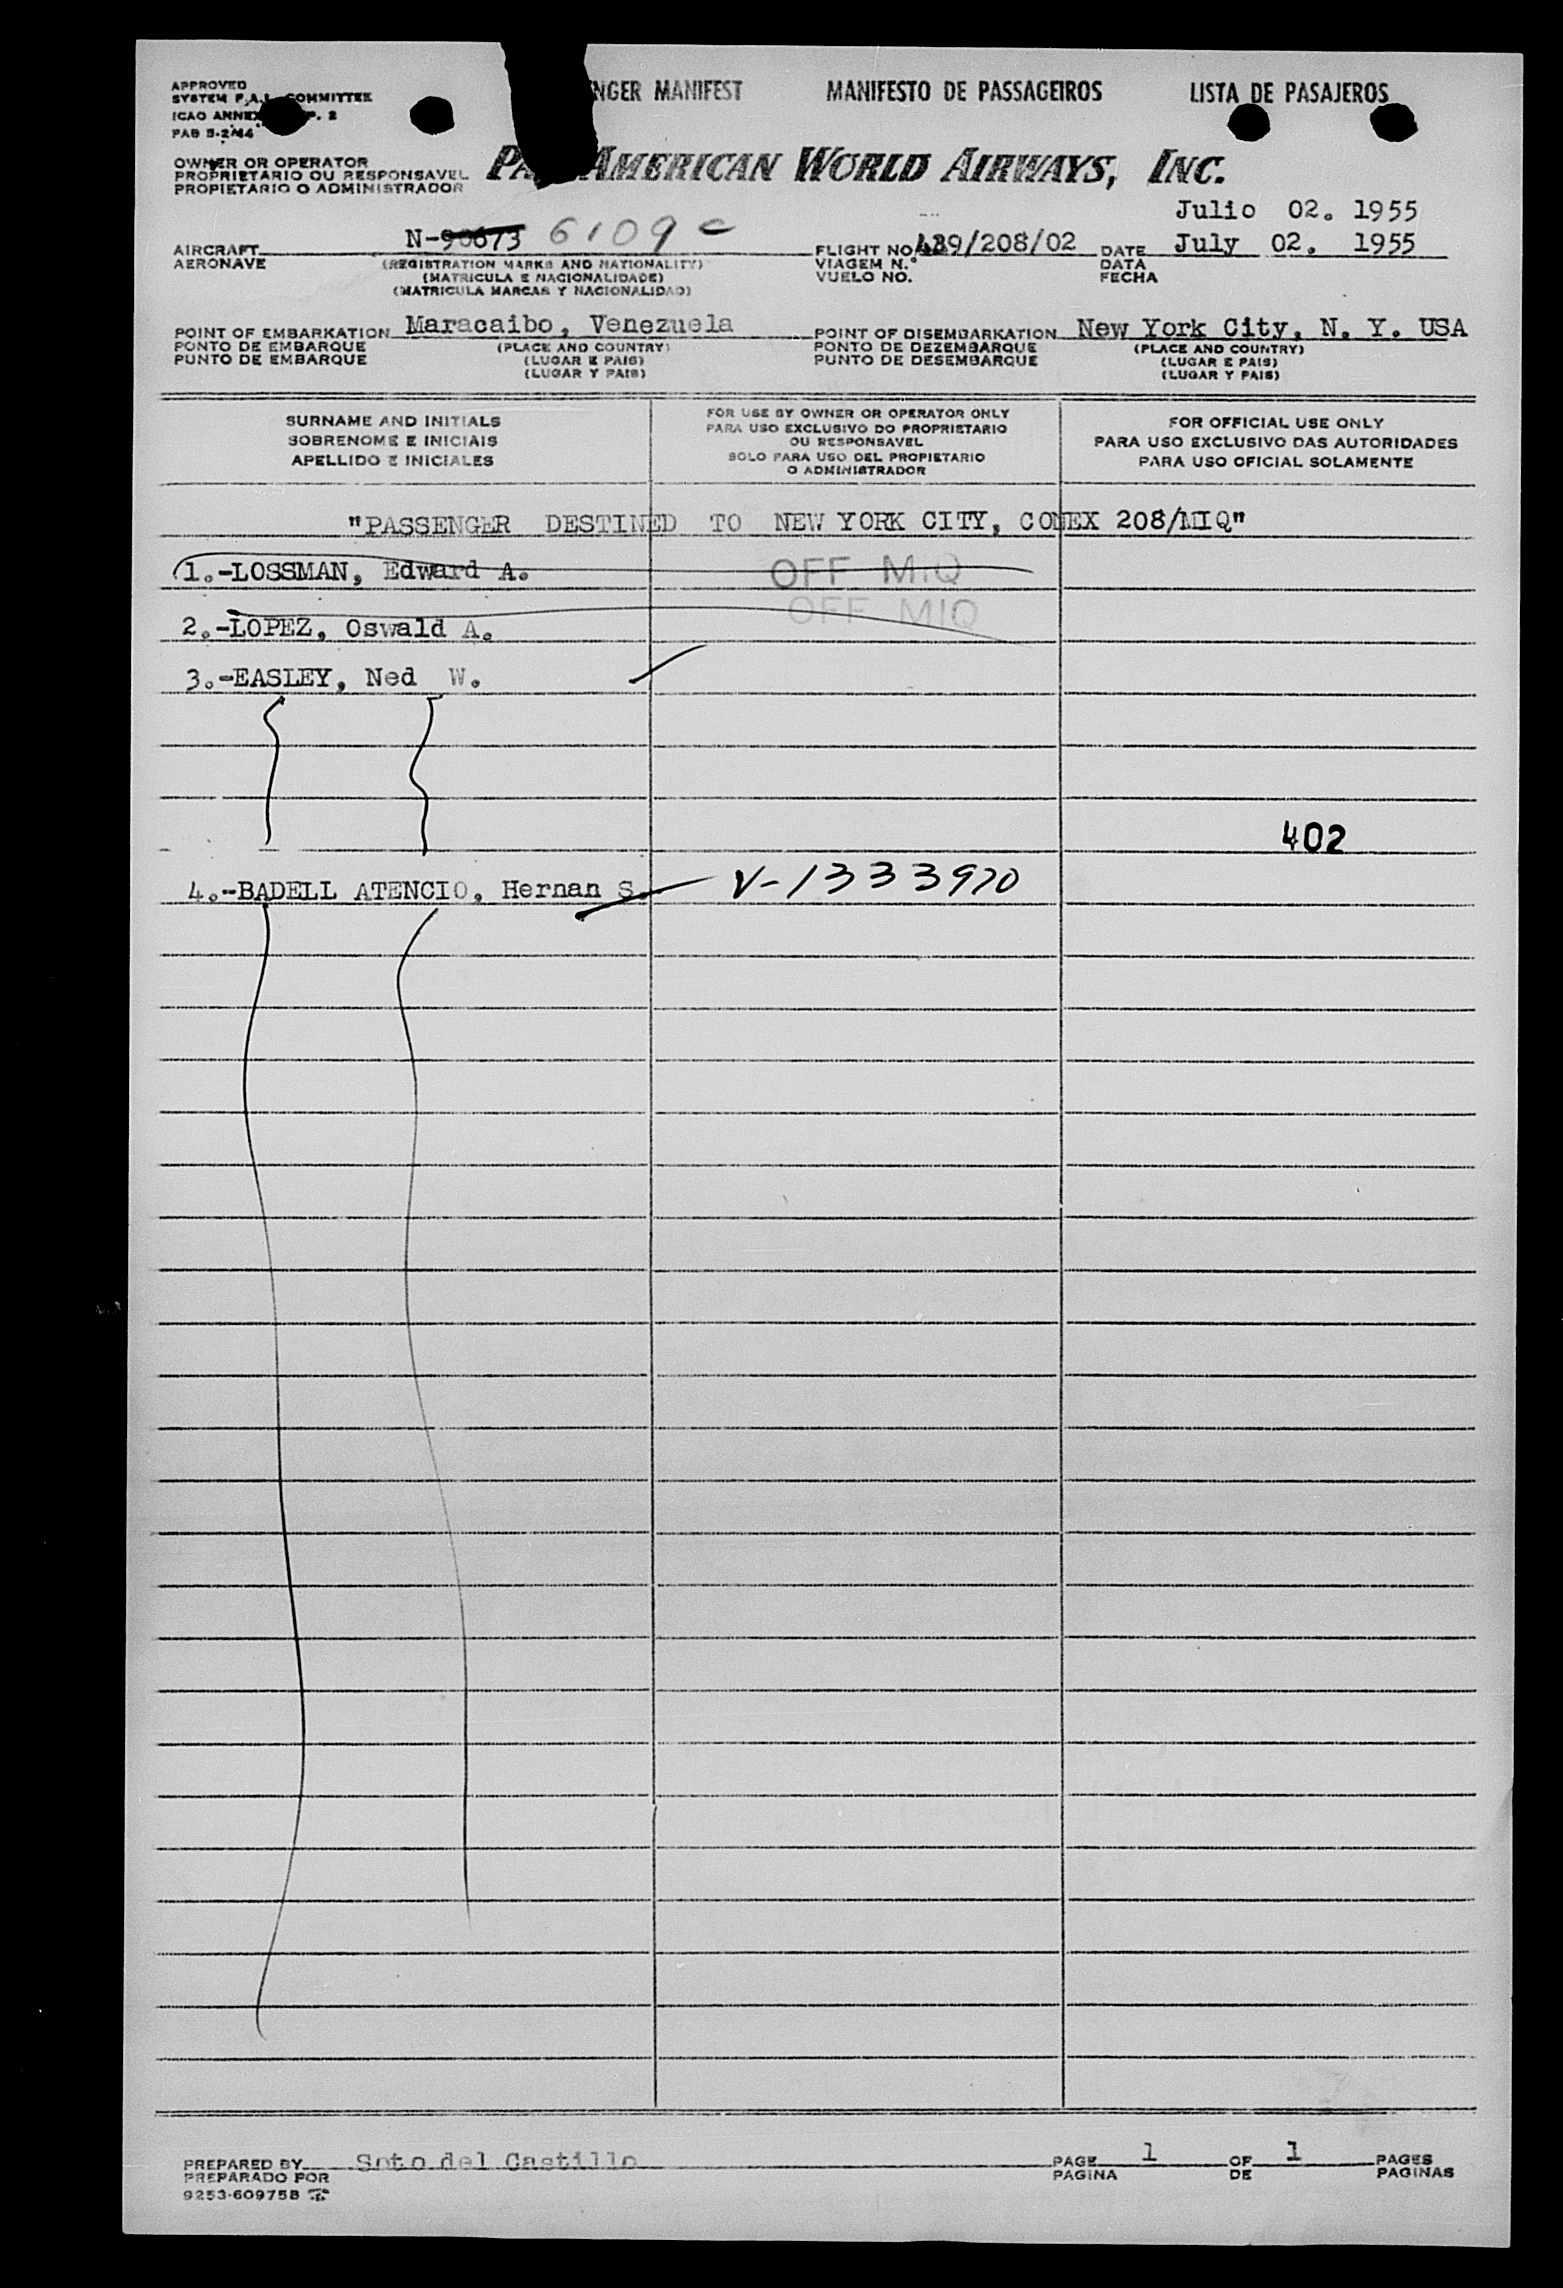 APPROVED
SYSTEM F.A.L. COMMITTEE
ICAO ANNEX P. 2
PAB 5-2/44
NGER MANIFEST MANIFESTO DE PASSAGEIROS LISTA DE PASAJEROS
OWNER OR OPERATOR
PROPRIETARIO OU RESPONSAVEL
PROPIETARIO O ADMINISTRADOR
PAN AMERICAN WORLD AIRWAYS, INC.
Julio 02. 1955
AIRCRAFT N-90673 6109 C FLIGHT NO. 439/208/02 DATE July 02. 1955
AERONAVE (REGISTRATION MARKS AND NATIONALITY) VIAGEM N.° DATA
(MATRICULA E NACIONALIDADE) VUELO NO. FECHA
(MATRICULA MARCAS Y NACIONALIDAD)
POINT OF EMBARKATION Maracaibo, Venezuela POINT OF DISEMBARKATION New York City, N. Y. USA
PONTO DE EMBARQUE (PLACE AND COUNTRY) PONTO DE DEZEMBARQUE (PLACE AND COUNTRY)
PUNTO DE EMBARQUE (LUGAR E PAIS) PUNTO DE DESEMBARQUE (LUGAR E PAIS)
(LUGAR Y PAIS) (LUGAR Y PAIS)
SURNAME AND INITIALS
SOBRENOME E INICIAIS
APELLIDO E INICIALES
FOR USE BY OWNER OR OPERATOR ONLY
PARA USO EXCLUSIVO DO PROPRIETARIO
OU RESPONSAVEL
SOLO PARA USO DEL PROPIETARIO
O ADMINISTRADOR
FOR OFFICIAL USE ONLY
PARA USO EXCLUSIVO DAS AUTORIDADES
PARA USO OFICIAL SOLAMENTE
"PASSENGER DESTINED TO NEW YORK CITY, CONEX 208/MIQ"
1.-LOSSMAN, Edward A. OFF MIQ
OFF MIQ
2.-LOPEZ, Oswald A.
3.-EASLEY, Ned W.
402
4.-BADELL ATENCIO, Hernan S. V-1333970
PREPARED BY Soto del Castillo PAGE 1 OF 1 PAGES
PREPARADO POR PAGINA DE PAGINAS
9253-609758